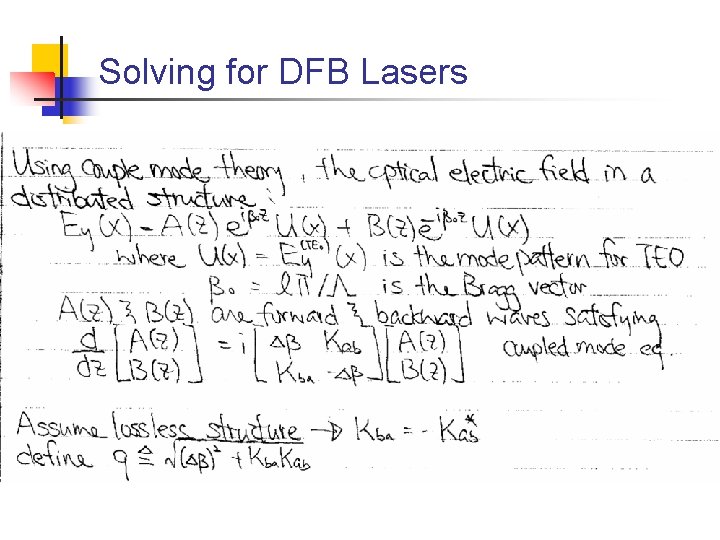 Solving for DFB Lasers
Using couple mode theory, the optical electric field in a
distributed structure:
Ey(x) = A(z) e^{iβ₀z} U(x) + B(z) e^{-iβ₀z} U(x)
where U(x) = Ey^{(TE₀)}(x) is the mode pattern for TE0
β₀ = lπ/Λ is the Bragg vector
A(z) & B(z) are forward & backward waves satisfying
d/dz [A(z) B(z)] = i [Δβ Kab Kba -Δβ] [A(z) B(z)] coupled mode eq.
Assume lossless structure → Kba = - Kab*
define q ≜ √(Δβ)² + KbaKab